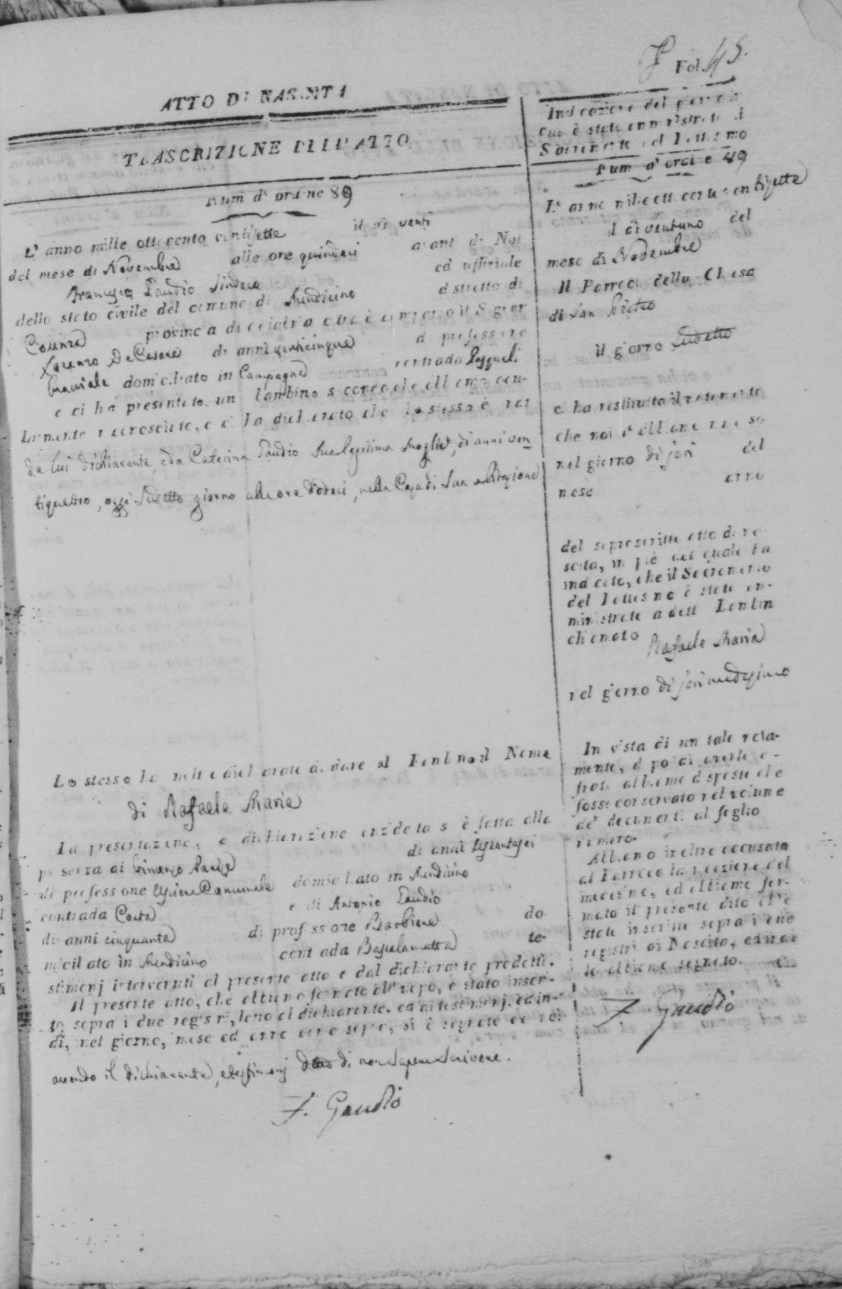 Fol. 45.
ATTO DI NASCITA
TRASCRIZIONE DELL'ATTO
Num d'ordine 89
L'anno mille ottocento ventisette il dì venti
del mese di Novembre alle ore quindeci avanti di Noi
Francesco Gaudio Sindaco ed uffiziale
dello stato civile del comune di Mendicino distretto di
Cosenza provincia di Calabria citra è comparso il Signor
Lorenzo De Cesare di anni di professione
domiciliato in Campagna contrada
e ci ha presentato un bambino secondochè abbiamo ocu-
larmente riconosciuto, e ci ha dichiarato che lo stesso è nat
da lui dichiarante, e da Caterina Gaudio sua legittima moglie, di anni ven
tiquattro, oggi sudetto giorno alle ore dodeci, nella Casa di sua abitazione
Lo stesso ha inoltre dichiarato di dare al Bambino il Nome
di Rafaele Maria
La presentazione, e dichiarazione anzidetta si è fatta alla
presenza di di anni
di professione Comunale domiciliato in Mendicino
contrada Costa e di Antonio Gaudio
di anni cinquanta di professione Barbiere do
miciliato in Mendicino contrada te-
stimonj intervenuti al presente atto e dal dichiarante predotti.
Il presente atto, che abbiamo formato all'uopo, è stato inscrit-
to sopra i due registri, letto al dichiarante, ed ai testimonj, ed in-
di, nel giorno, mese ed anno come sopra, si è segnato da noi
avendo il dichiarante, e testimonj detto di non sapere scrivere.
F. Gaudio
Indicazione del giorno in
cui è stato amministrato il
Sacramento del Battesimo
Num d'ordine 49
L'anno mille ottocento ventisette
il dì ventuno del
mese di Novembre
Il Parroco della Chiesa
di San Pietro
il giorno sudetto
ci ha restituito il notamento
che noi l'abbiamo rimesso
nel giorno di jeri del
mese anno
del soprascritto atto di na-
scita, in piè del quale ha
indicato, che il Sacramento
del Battesimo è stato am-
ministrato a detto Bambin
chiamato Rafaele Maria
nel giorno di jeri medesimo
In vista di un tale nota-
mento, dopo di averlo ci-
frato abbiamo disposto che
fosse conservato nel volume
de' documenti al foglio
numero.
Abbiamo inoltre accusato
al Parroco la recezione del
medesimo, ed abbiamo for-
mato il presente atto ch'è
stato inscritto sopra i due
registri di Nascita, ed indi
lo abbiamo segnato.
F. Gaudio